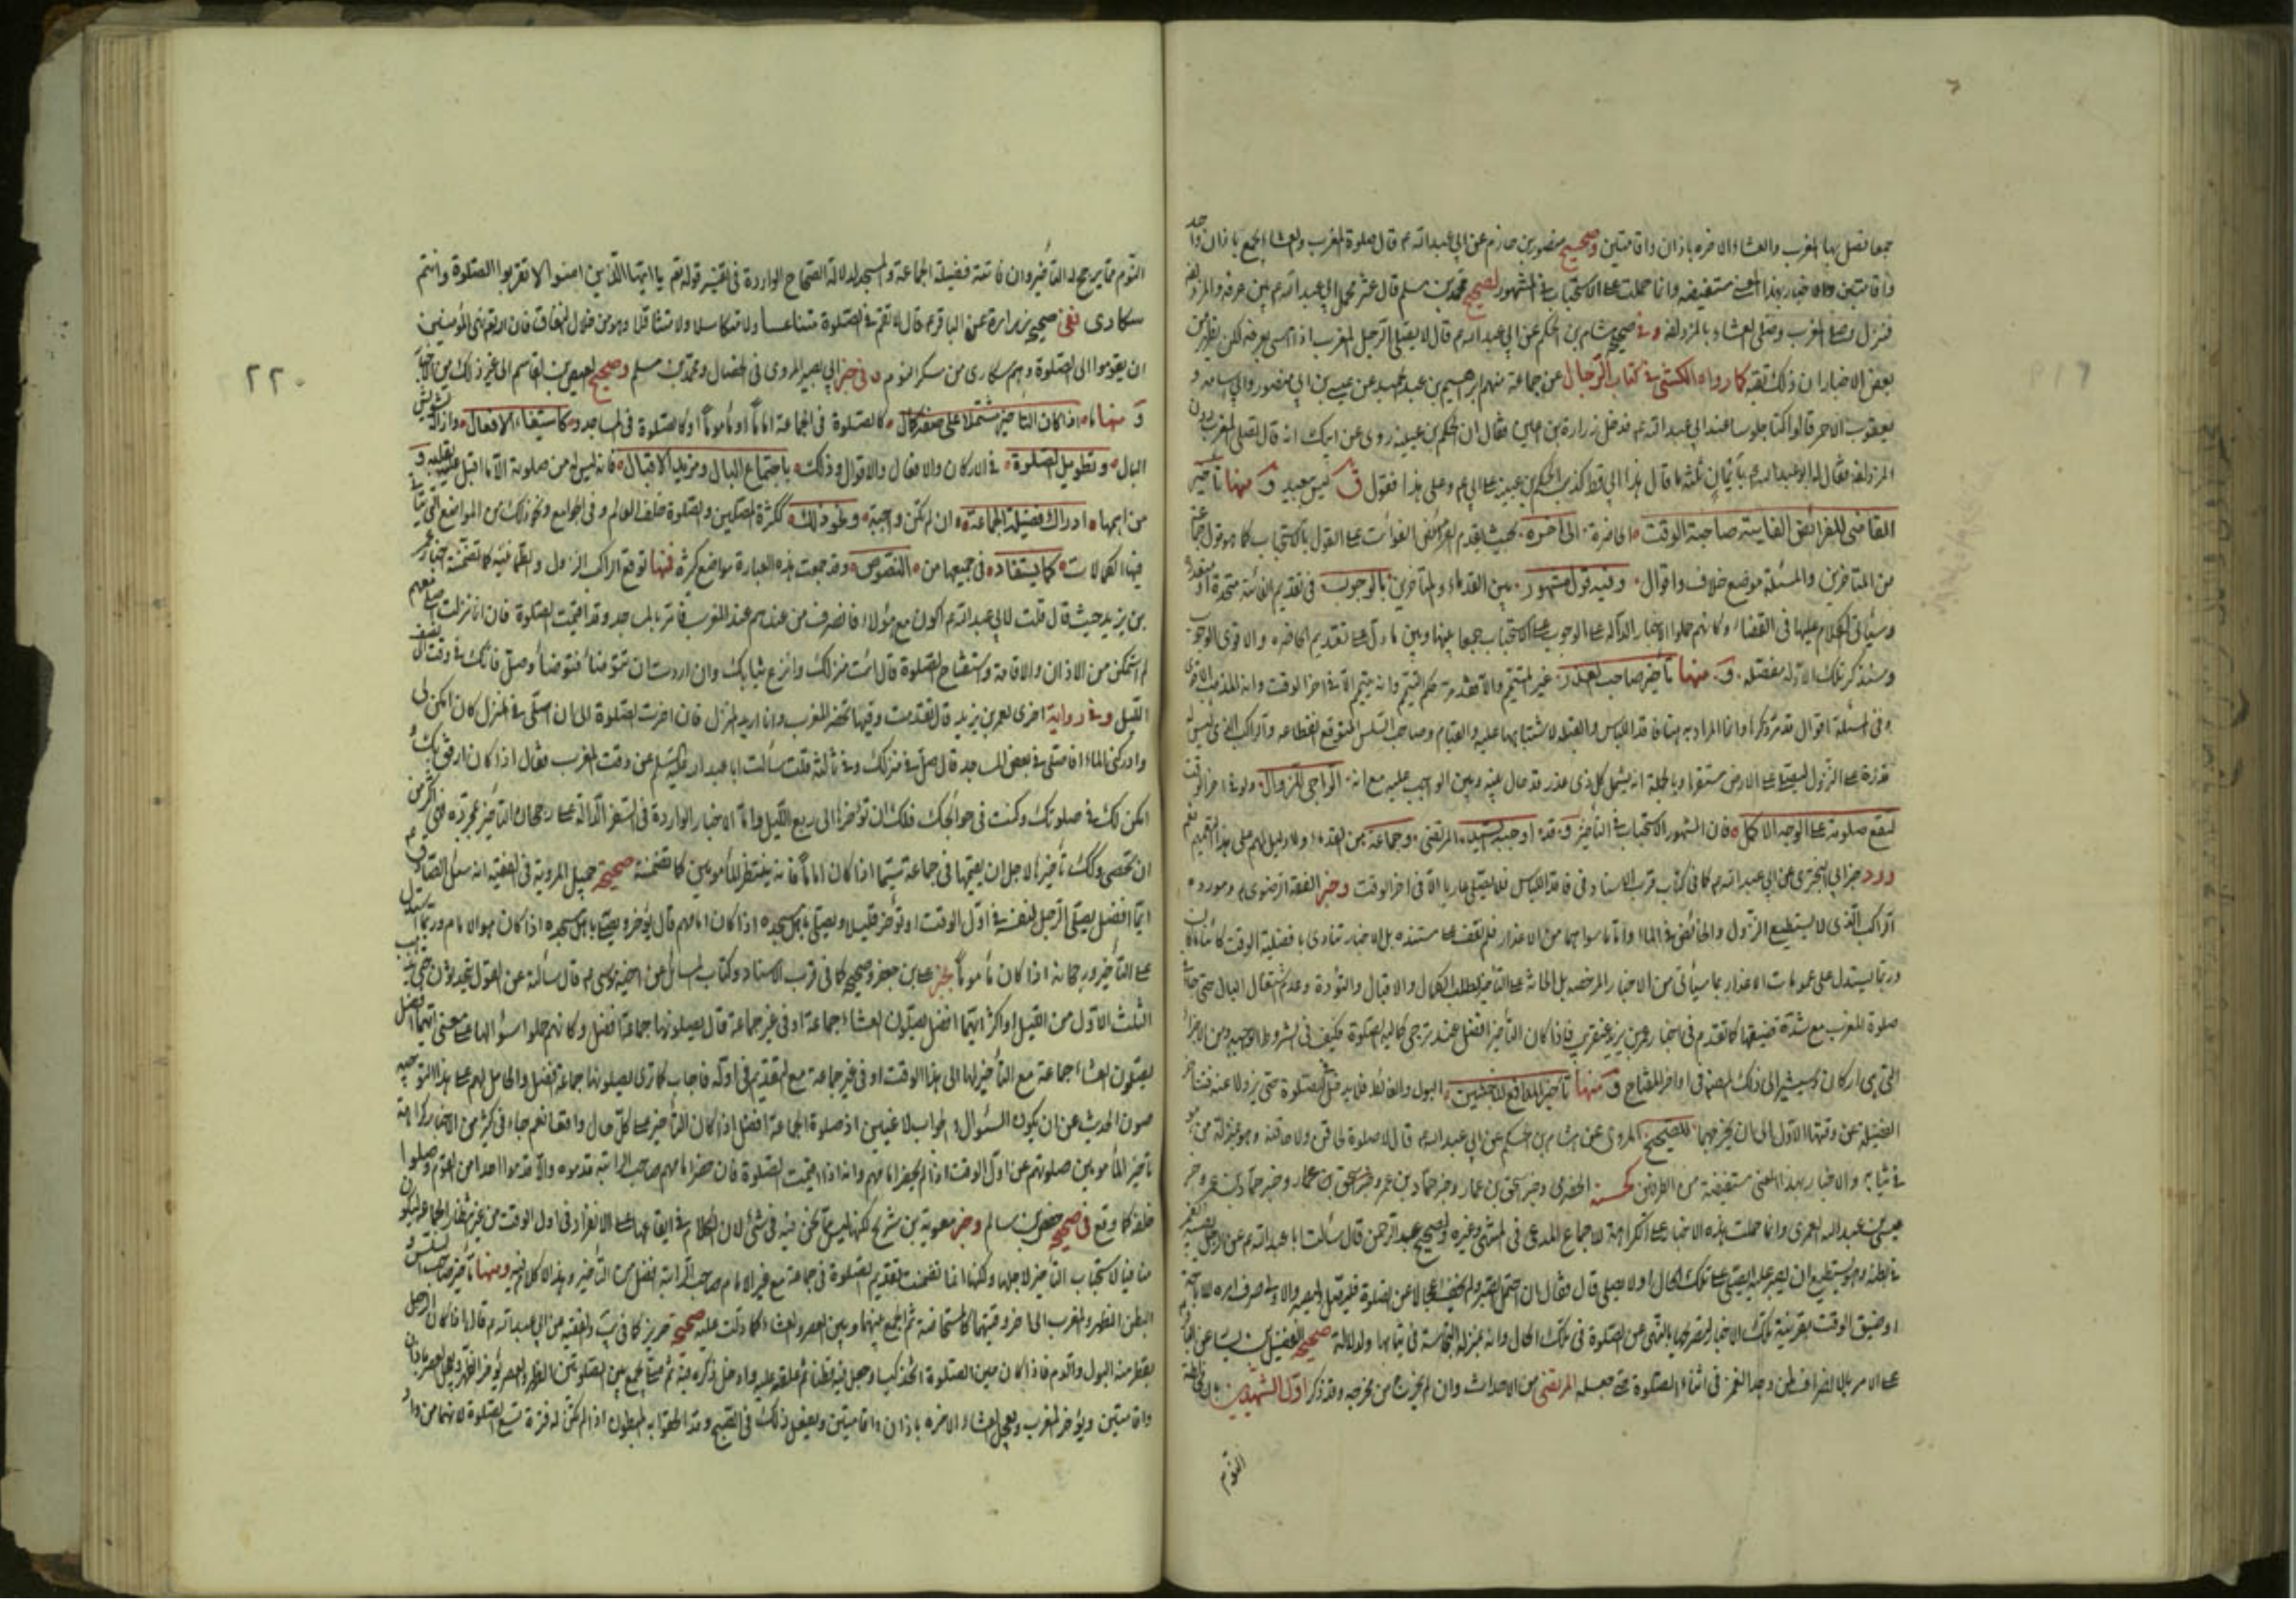 جمعا فصل بها المغرب والعشاء الاخره باذان واقامتين وصحيح منصور بن حازم عن ابي عبد الله ع قال صلوة المغرب والعشاء بجمع باذان واحد
واقامتين والاخبار بهذا المعنى مستفيضه وانما حملت على الاستحباب في المشهور لصحيح محمد بن مسلم قال عثر محمل ابي عبد الله ع بين عرفه والمزدلفه
فنزل وصلى المغرب وصلى العشاء بالمزدلفه وفي صحيح هشام بن الحكم عن ابي عبد الله ع قال لا يصلي الرجل المغرب اذا امسى بعرفه لكن يظهر من
بعض الاخبار ان ذلك تقيه كما رواه الكشي في كتاب الرجال عن جماعة منهم ابرهيم بن عبد الحميد عن عيسى بن ابي منصور وابي اسامه و
يعقوب الاحمر قالوا كنا جلوسا عند ابي عبد الله ع فدخل زرارة بن اعين فقال ان الحكم بن عيينه روى عن ابيك انه قال تصلى المغرب دون
المزدلفه فقال له ابو عبد الله ع بأيمان ثلثه ما قال هذا ابي قط كذب الحكم بن عيينه على ابي ع وعلى هذا فقول ليس ببعيد و منها تأخير
القاضي للفرائض الفايته صاحبة الوقت الحاضرة الى اخره بحيث يقدم الفرائض الفوائت على القول بالاستحباب كما هو قول جماعة
من المتأخرين والمسئلة موضع خلاف واقوال وفيه قول مشهور بين القدماء والمتأخرين بالوجوب في تقديم الفائتة متحدة او متعددة
وسيأتي الكلام عليها في القضاء وكانهم حملوا الاخبار الدالة على الوجوب على الاستحباب جمعا بينها وبين ما دل على تقديم الحاضره والاقوى الوجوب
وسنذكر تلك الادلة مفصله و منها تأخير صاحب العذر غير المتيمم والا فقد مر حكم التيمم وانه يتيمم الا في اخر الوقت وانه المذهب الاقوى
وفي المسئلة اقوال قد مر ذكرها وانما المراد به هنا فاقد اللباس والقبله لاشتباهها عليه والقيام وصاحب السلس المتوقع انقطاعه والراكب الذي ليس له
قدرة على النزول ليصلي على الارض مستقرا وبالجملة انه يشمل كل ذي عذر قد حال بينه وبين الواجب عليه مع انه الراجي للزوال ولو في اخر الوقت
ليقع صلوته على الوجه الاكمل فان المشهور الاستحباب في التأخير و قد اوجبه السيد المرتضى وجماعة من القدماء ولا دليل لهم على هذا التعميم نعم
ورد خبر ابي البختري عن ابي عبد الله ع كما في كتاب قرب الاسناد في فاقد اللباس فلا يصلي عاريا الا في اخر الوقت وخبر الفقه الرضوي ومورده
الراكب الذي لا يستطيع النزول والخائض في الماء واما ما سواهما من الاعذار فلم نقف على مستنده بل الاخبار تنادي بافضلية الوقت كائنا ما كان
وربما يستدل على عمومات الاعذار بما سيأتي من الاخبار المرخصه بل الحاثة على التأخير لطلب الكمال والاقبال والتؤدة وعدم اشتغال البال حتى جاء في
صلوة المغرب مع شدة ضيقها كما تقدم في اخبار عمر بن يزيد عن قريب فاذا كان التأخير افضل عند ترجي كمالية الصلوة فكيف في الشروط الوجوبيه ومن الاجزاء
التي هي اركان وسيشير الى ذلك المصنف في اواخر المفتاح و منها تأخير المدافع للاخبثين البول والغائط فلا يدخل في الصلوة حتى يزولا عنه فتتأخر
الفضيلة عن وقتها الاول الى ان يخرجهما للصحيح المروي عن هشام بن الحكم عن ابي عبد الله ع قال لا صلوة لحاقن ولا حاقنه وهو بمنزلة من هو
في ثيابه والاخبار بهذا المعنى مستفيضة من الطرفين كحسنة الحضرمي وخبر اسحق بن عمار وخبر حماد بن عمرو وخبر اسحق بن عمار وخبر حماد بن عمرو وخبر
عيسى بن عبد الله العمري وانما حملت هذه الاخبار على الكراهة للاجماع المدعى في المنتهى وغيره ولصحيح عبد الرحمن قال سألت ابا عبد الله ع عن الرجل يصيبه الغمز
في بطنه وهو يستطيع ان يصبر عليه ايصلي على تلك الحال او لا يصلي قال فقال ان احتمل الصبر ولم يخف اعجالا عن الصلوة فليصل وليصبر والاولى صرف هذه للاجئة
او ضيق الوقت بقرينة تلك الاخبار لتصريحها بالنهي عن الصلوة في تلك الحال وانه بمنزلة النجاسة في ثيابها ولدلالة صحيح الفضيل بن يسار عن الباقر ع
على الامر بالانصراف لمن وجد الغمز في اثناء الصلوة حتى جعله المرتضى من الاحداث وان لم يخرج من مخرجه وقد ذكر اول الشهيدين ان مدافعة
النوم
٢٢٠
النوم مما يرجح له التأخير وان فاتته فضيلة الجماعة والمسجد لدلالة الصحاح الواردة في تفسير قوله تعالى يا ايها الذين امنوا لا تقربوا الصلوة وانتم
سكارى ففي صحيح زرارة عن الباقر ع قال لا تقم في الصلوة متناعسا ولا متكاسلا ولا متثاقلا وهو من خلال النفاق فان الله نهى المؤمنين
ان يقوموا الى الصلوة وهم سكارى من سكر النوم وفي خبر ابي بصير المروي في الخصال ومحمد بن مسلم وصحيح العيص بن القاسم الى غير ذلك من الاخبار
و منها ما اذا كان التأخير مشتملا على صفة كمال كالصلوة في الجماعة اماما او مأموما او كالصلوة في المساجد وكاستيفاء الافعال وازالة تشويش
البال وتطويل الصلوة في الاركان والافعال والاقوال وذلك باجتماع البال ومزيد الاقبال فانه ليس له من صلوته الا ما اقبل عليه بقلبه و
من اهمها ادراك فضيلة الجماعة وان لم تكن واجبة ونحو ذلك ككثرة المصلين والصلوة خلف العالم وفي الجوامع ونحو ذلك من المواضع التي يتأتى
فيها الكمالات كما يستفاد في جميعها من النصوص وقد جمعت هذه العبارة مواضع كثيرة فمنها توقع الراكب النزول والطمأنينه كما تضمنته اخبار عمر
بن يزيد حيث قال قلت لابي عبد الله ع اكون مع هؤلاء فانصرف من عندهم عند المغرب فامر بالمساجد وقد اقيمت الصلوة فان انا نزلت اصلي معهم
لم استمكن من الاذان والاقامة واستفتاح الصلوة قال ائت منزلك وانزع ثيابك وان اردت ان تتوضأ فتوضأ وصل فانك في وقت الى نصف
الليل وفي رواية اخرى لعمر بن يزيد قال تقدمت وفيها تحضر المغرب وانا اريد المنزل فان اخرت الصلوة الى ان اصلي في المنزل كان امكن لي
وادركني المساء افاصلي في بعض المساجد قال صل في منزلك وفي ثالثة قلت سألت ابا عبد الله عليه السلم عن وقت المغرب فقال اذا كان ارفق بك و
امكن لك في صلوتك وكنت في حوائجك فلك ان تؤخرها الى ربع الليل واما الاخبار الواردة في السفر الدالة على رجحان التأخير بمجرده فهي اكثر من
ان تحصى وكك تأخيرها لاجل ان يصليها في جماعة سيما اذا كان اماما فانه ينتظر المأمومين كما تضمنته صحيحة جميل المروية في الفقيه انه سئل الصادق ع
ايما افضل يصلي الرجل لنفسه في اول الوقت او تؤخر قليلا ويصلي باهل مسجده اذا كان امامهم قال يؤخر ويصلي باهل مسجده اذا كان هو الامام وربما استدل
على التأخير ورجحانه اذا كان مأموما بخبر علي بن جعفر وصحيحه كما في قرب الاسناد وكتاب المسائل عن اخيه موسى ع قال سألته عن القوم يتحدثون حتى يذهب
الثلث الاول من الليل او اكثر ايهما افضل يصلون العشاء جماعة او في غير جماعة قال يصلونها جماعة افضل وكانهم حملوا السؤال على معنى ايهما افضل
يصلون العشاء جماعة مع التأخير لها الى هذا الوقت او في غير جماعة مع التقديم في اوله فاجاب كما ترى يصلونها جماعة افضل والحامل لهم على هذا التوجيه
صون الحديث عن ان يكون السؤال والجواب لاغيين اذ صلوة الجماعة افضل اذا كان التأخير على كل حال واقعا نعم جاء في كثير من الاخبار كراهة
تأخير المأمومين صلوتهم عن اول الوقت اذا لم يحضر امامهم وانه اذا اقيمت الصلوة فان حضر امامهم صاحب الراتبه قدموه والا قدموا احدا من القوم وصلوا
خلفه كما وقع في صحيح حفص بن سالم وخبر معوية بن شريح لكنها ليس مما نحن فيه في شئ لان الكلام في ايقاعها على الانفراد في اول الوقت من غير انتظار الجماعة ليكون
منافيا لاستحباب التأخير لاجلها ولكنها انما تضمنت تقديم الصلوة في جماعة مع غير الامام صاحب الراتبة افضل من التأخير وهذا لا كلام فيه ومنها تأخير صاحب السلس و
البطن الظهر والمغرب الى اخر وقتيهما كالمستحاضة ثم الجمع بينهما وبين العصر والعشاء كما دلت عليه صحيح حريز كما في يب والفقيه عن ابي عبد الله ع قال اذا كان الرجل
يقطر منه البول والدم فاذا كان حين الصلوة اتخذ كيسا وجعل فيه قطنا ثم علقه عليه وادخل ذكره فيه ثم صلى يجمع بين الصلوتين الظهر والعصر يؤخر الظهر ويعجل العصر باذان
واقامتين ويؤخر المغرب ويعجل العشاء الاخره باذان واقامتين ويفعل ذلك في الصبح وقد الحقوا به المبطون اذا لم تكن له فترة تسع الصلوة لانهما من واد